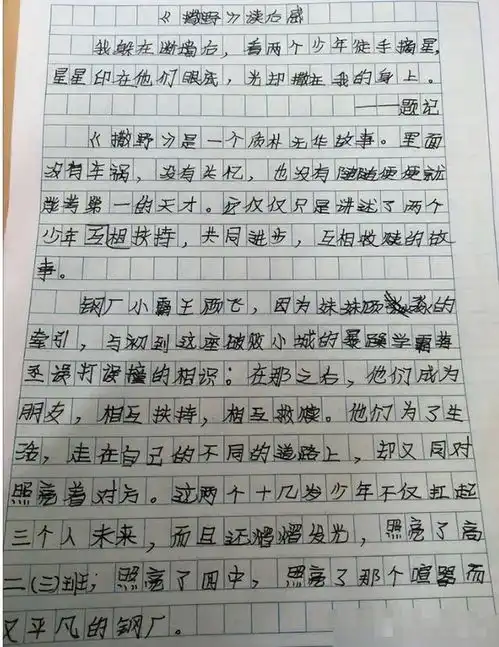 《撒野》读后感
我躲在断墙后，看两个少年徒手摘星，
星星印在他们眼底，光却撒在我的身上。
——题记
《撒野》是一个质朴无华故事。里面
没有车祸，没有失忆，也没有随随便便就
能考第一的天才。它仅仅只是讲述了两个
少年互相扶持，共同进步，互相救赎的故
事。
钢厂小霸王顾飞，因为妹妹顾淼的
牵引，与初到这座破败小城的暴躁学霸蒋
丞误打误撞的相识；在那之后，他们成为
朋友，相互扶持，相互救赎。他们为了生
活，走在自己的不同的道路上，却又同对
照亮着对方。这两个十几岁少年不仅扛起
三个人未来，而且还熠熠发光，照亮了高
二(三)班；照亮了四中，照亮了那个喧嚣而
又平凡的钢厂。